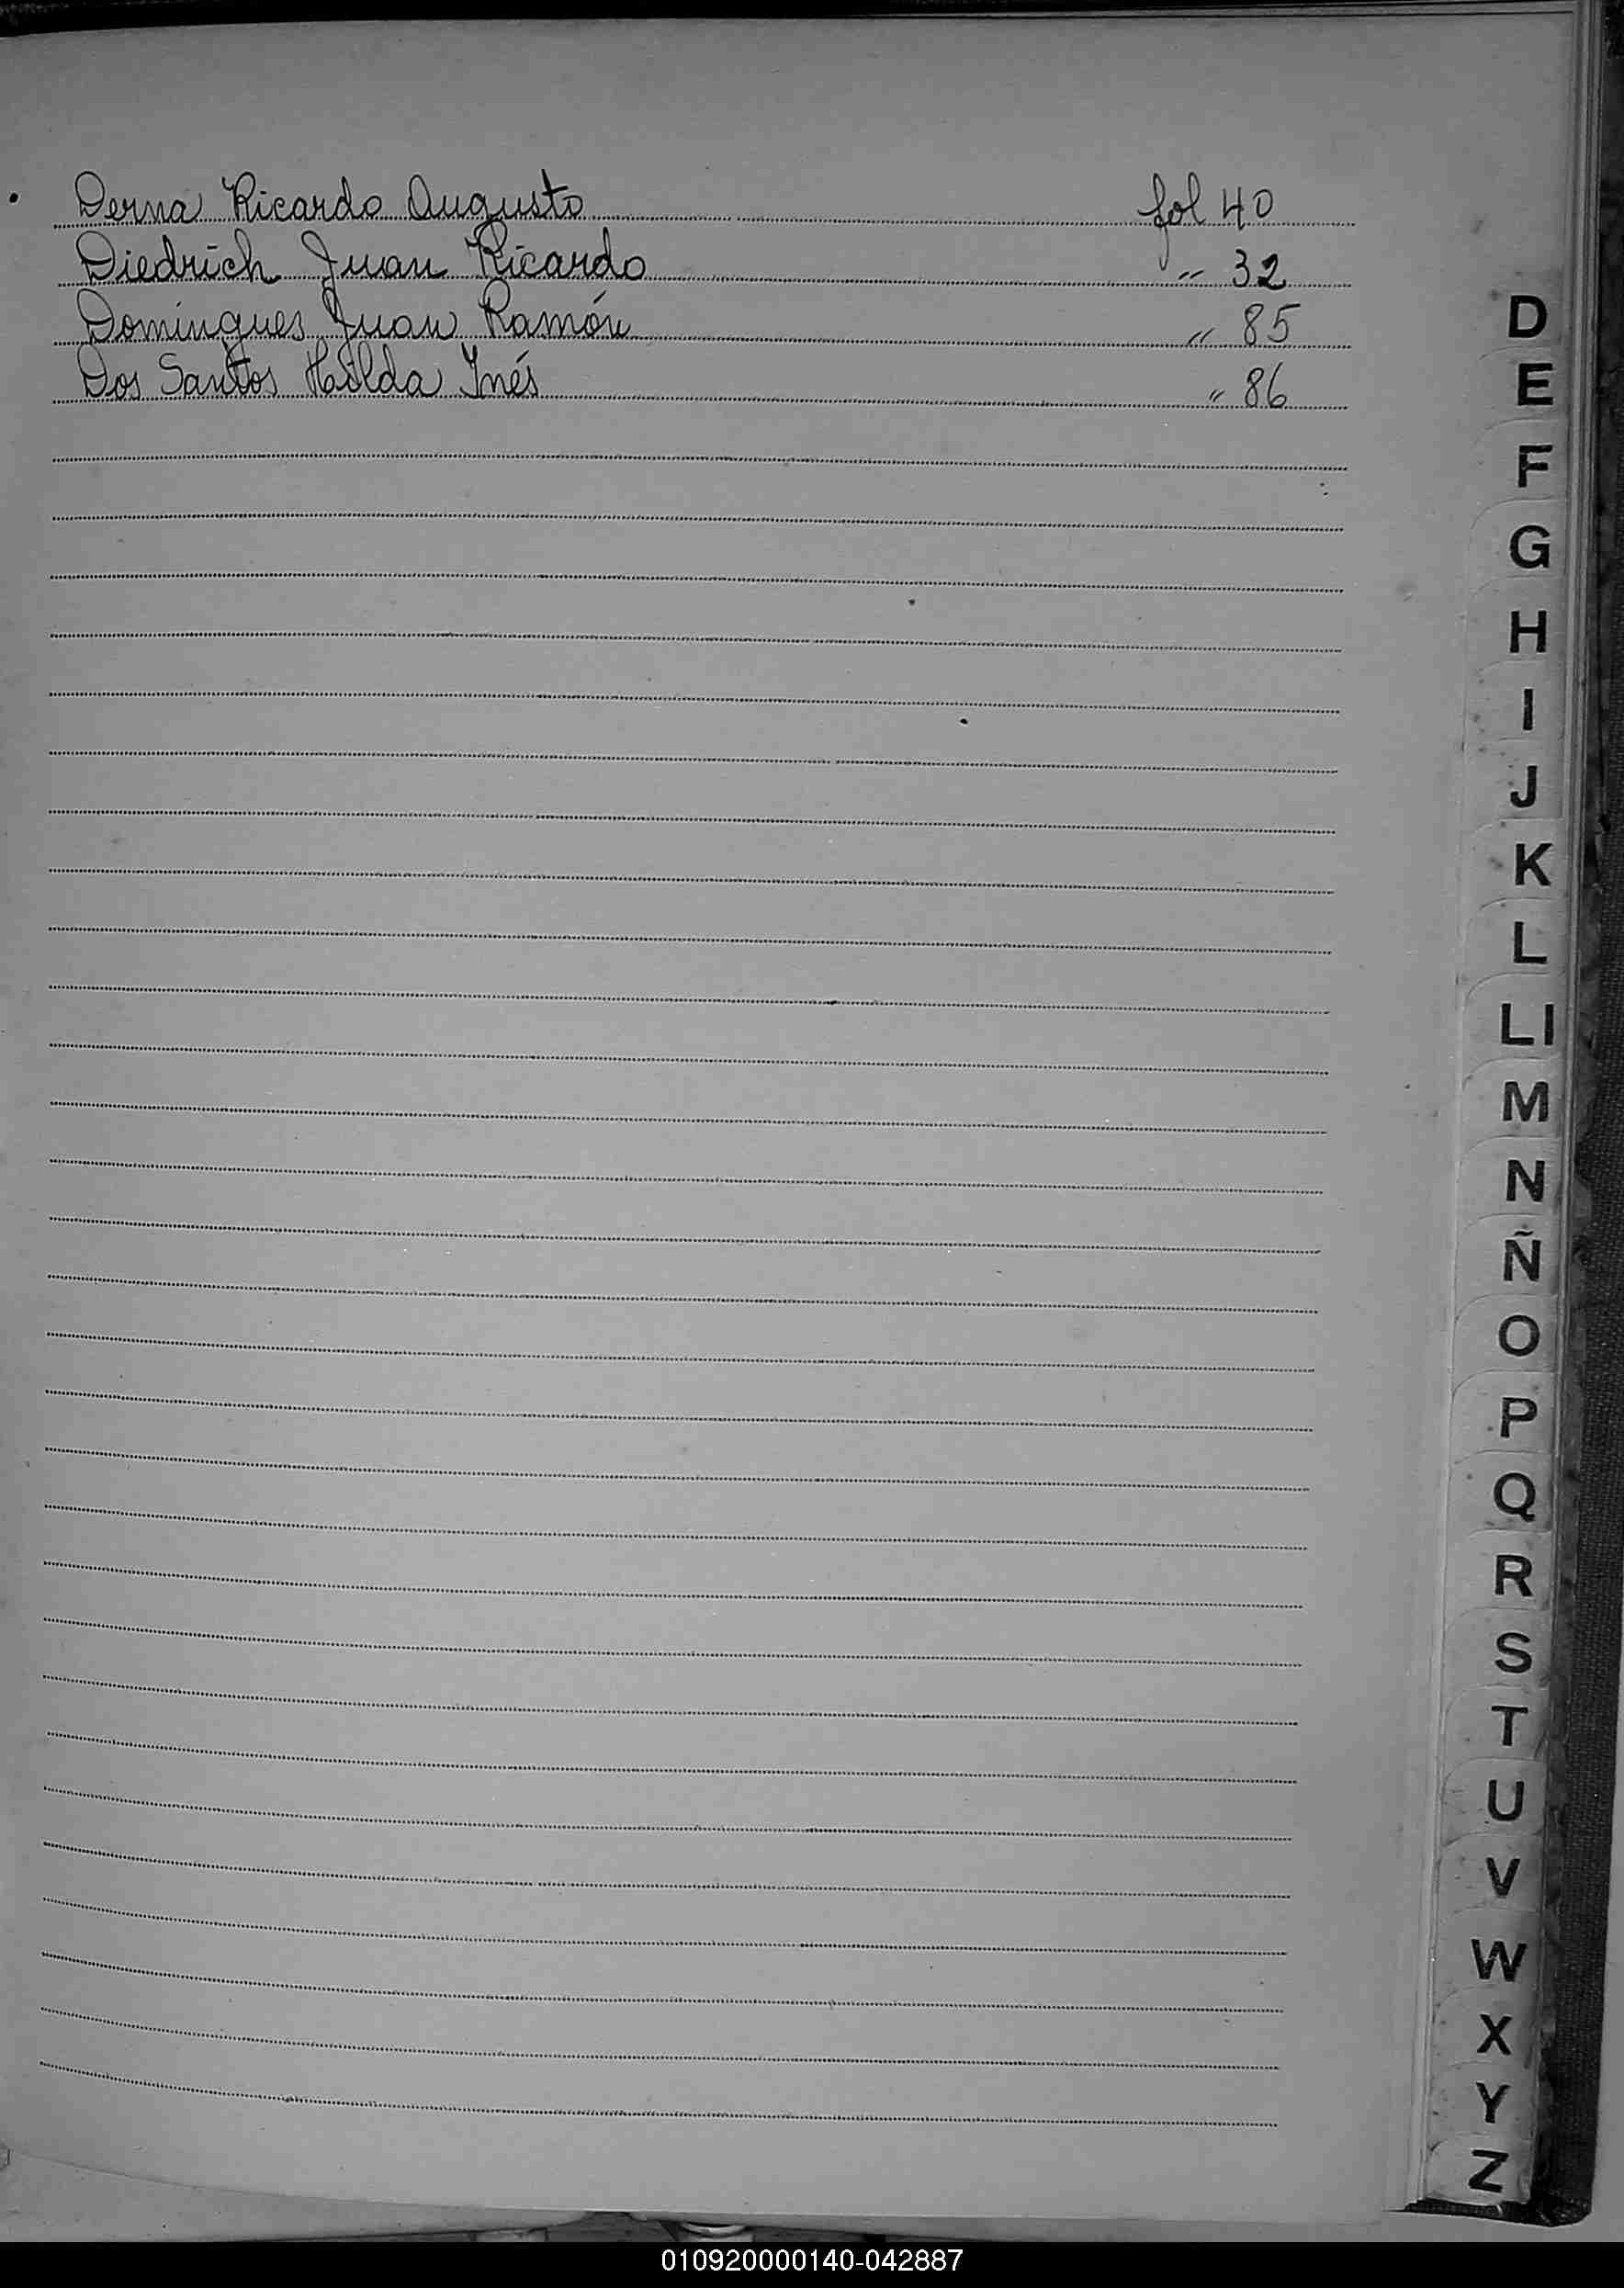 Derna Ricardo Augusto fol 40
Diedrich Juan Ricardo " 32
Domingues Juan Ramón " 85
Dos Santos Hilda Inés " 86
D
E
F
G
H
I
J
K
L
Ll
M
N
Ñ
O
P
Q
R
S
T
U
V
W
X
Y
Z
010920000140-042887